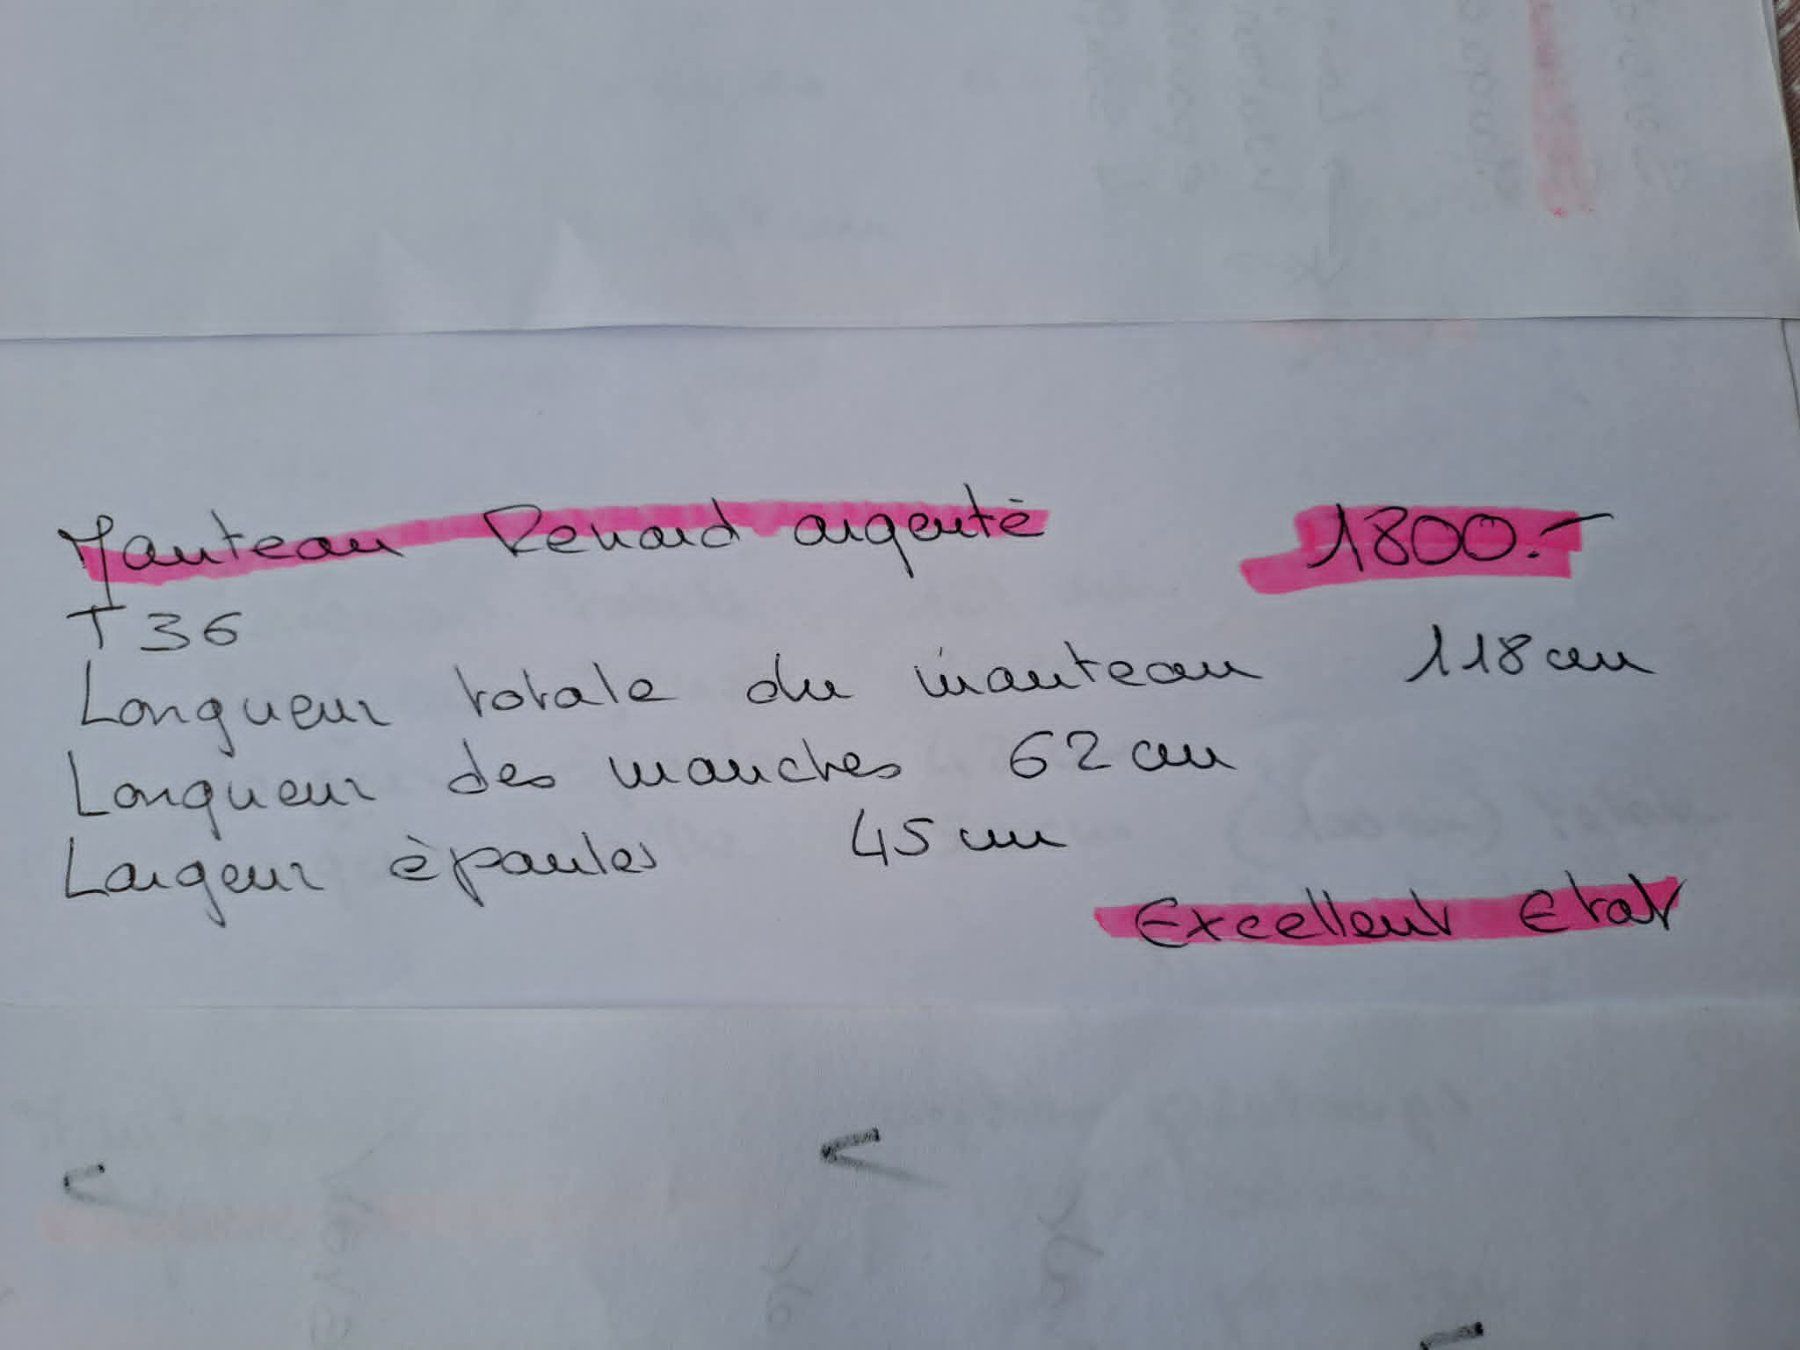 Manteau Renard argenté 1800.-
T 36
Longueur totale du manteau 118 cm
Longueur des manches 62 cm
Largeur épaules 45 cm
Excellent Etat